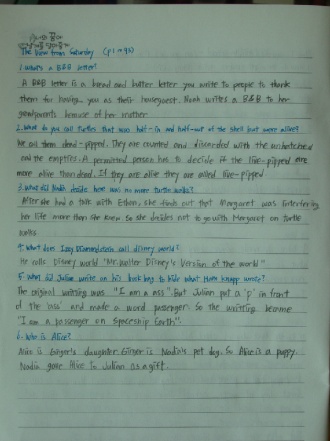 The View from Saturday (p1~93)
1. What's a B&B letter?
A B&B letter is a bread and butter letter you write to people to thank
them for having you as their houseguest. Noah writes a B&B to her
grandparents because of her mother
2. What do you call turtles that was half-in and half-out of the shell but were alive?
We call them dead-pipped. They are counted and discarded with the unhatched
and the empties. A permitted person has to decide if the live-pipped are
more alive than dead. If they are alive they are called live-pipped
3. What did Nadia decide next was no more turtle walks?
After she had a talk with Ethan, she finds out that Margaret was interfering
her life more than she knew. So she decides not to go with Margaret on turtle
walks
4. What does Izzy Diamondstein call disney world?
He calls Disney world "Mr. Walter Disney's Version of the world"
5. What did Julian write on his book bag to hide what Ham Knapp wrote?
The original writing was "I am a ass". But Julian put a 'p' in front
of the 'ass' and made a word passenger. So the writing became
"I am a passenger on Spaceship Earth"
6. Who is Alice?
Alice is Ginger's daughter. Ginger is Nadia's pet dog. So Alice is a puppy.
Nadia gave Alice to Julian as a gift.